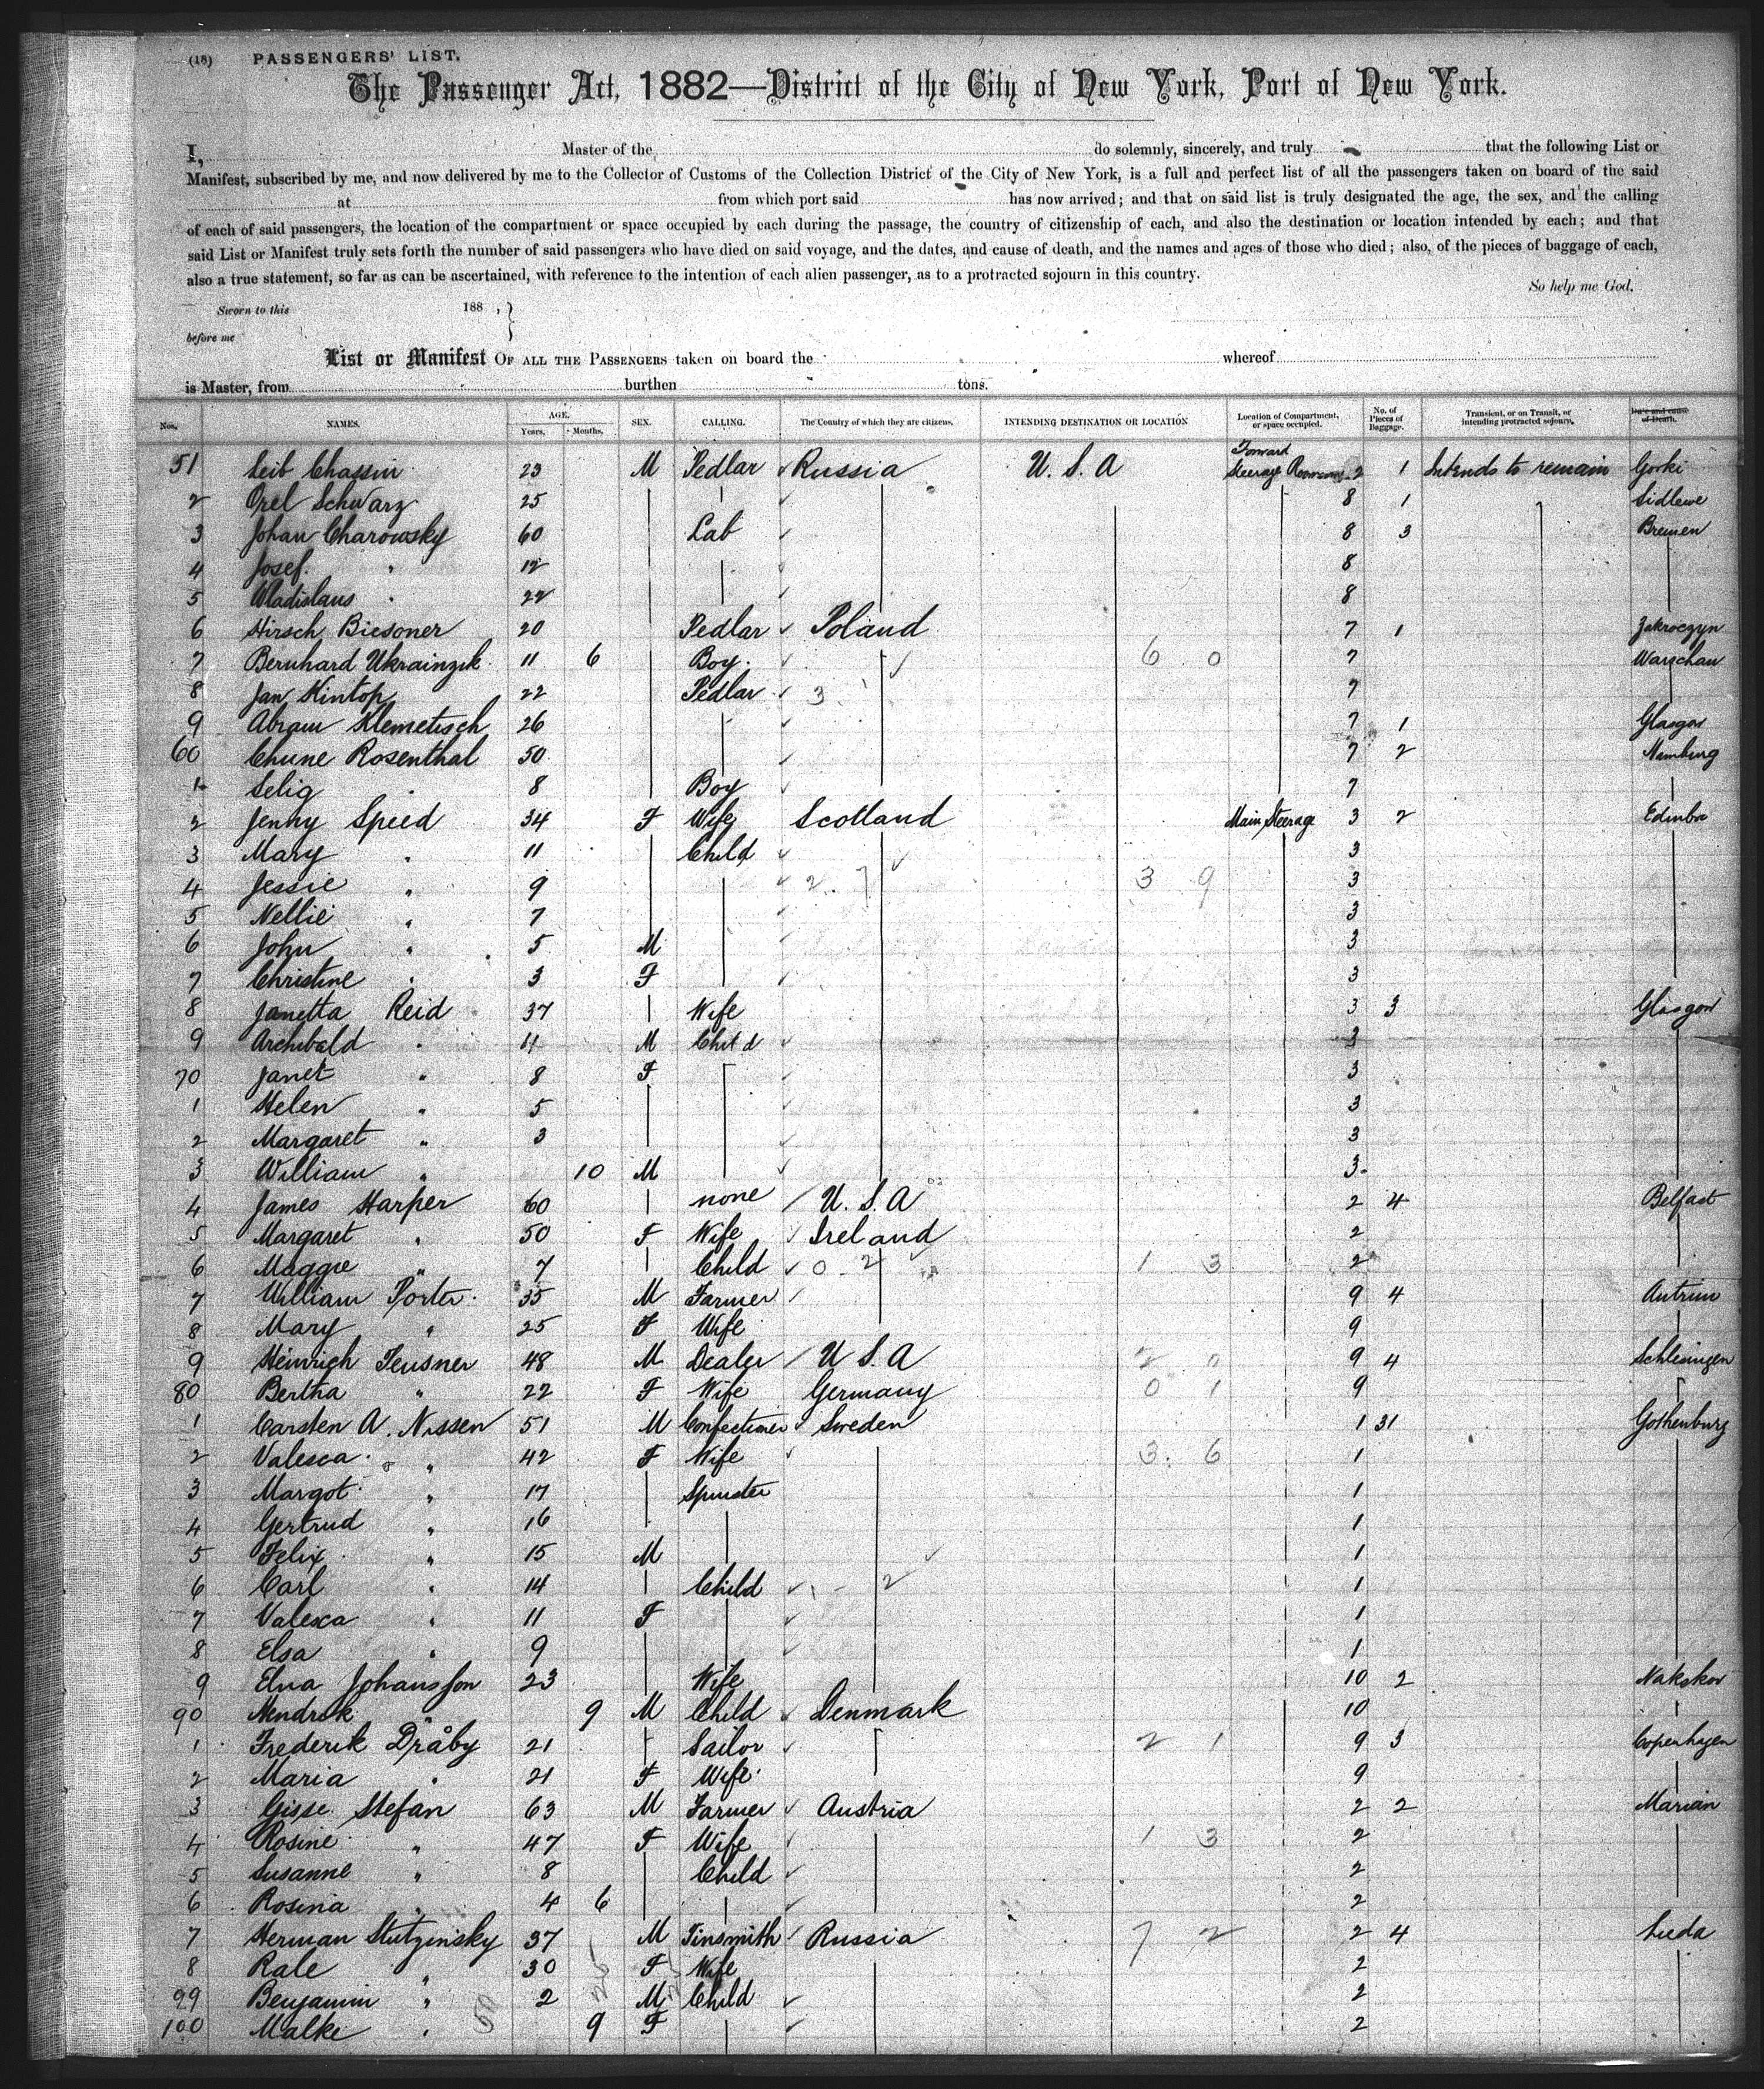 (18) PASSENGERS' LIST.
The Passenger Act, 1882—District of the City of New York, Port of New York.
I, Master of the do solemnly, sincerely, and truly that the following List or
Manifest, subscribed by me, and now delivered by me to the Collector of Customs of the Collection District of the City of New York, is a full and perfect list of all the passengers taken on board of the said
at from which port said has now arrived; and that on said list is truly designated the age, the sex, and the calling
of each of said passengers, the location of the compartment or space occupied by each during the passage, the country of citizenship of each, and also the destination or location intended by each; and that
said List or Manifest truly sets forth the number of said passengers who have died on said voyage, and the dates, and cause of death, and the names and ages of those who died; also, of the pieces of baggage of each,
also a true statement, so far as can be ascertained, with reference to the intention of each alien passenger, as to a protracted sojourn in this country.
So help me God.
Sworn to this 188 , }
before me
List or Manifest OF ALL THE PASSENGERS taken on board the whereof
is Master, from burthen tons.
Nos. NAMES. AGE. Years. Months. SEX. CALLING. The Country of which they are citizens. INTENDING DESTINATION OR LOCATION Location of Compartment, or space occupied. No. of Pieces of Baggage. Transient, or on Transit, or intending protracted sojourn. Date and cause of Death.
51 Leib Chassin 23 M Pedlar Russia U. S. A Forward Steerage Room 2 1 Intends to remain Gorki
2 Orel Schwarz 25 8 1 Sidlewe
3 Johan Charowsky 60 Lab 8 3 Bremen
4 Josef " 12 8
5 Wladislaus " 22 8
6 Hirsch Biesoner 20 Pedlar Poland 7 1 Zakroczyn
7 Bernhard Ukrainzik 11 6 Boy 6 0 7 Warschau
8 Jan Kintop 22 Pedlar 3 7
9 Abram Klemetisch 26 7 1 Glasgow
60 Chune Rosenthal 50 7 2 Hamburg
1 Selig 8 Boy 7
2 Jenny Speed 34 F Wife Scotland Main Steerage 3 2 Edinbro
3 Mary " 11 Child 3
4 Jessie " 9 2 7 3 9 3
5 Nellie " 7 3
6 John " 5 M 3
7 Christine " 3 F 3
8 Janetta Reid 37 Wife 3 3 Glasgow
9 Archibald " 11 M Child 3
70 Janet " 8 F 3
1 Helen " 5 3
2 Margaret " 3 3
3 William " 10 M 3
4 James Harper 60 none U. S. A 2 4 Belfast
5 Margaret " 50 F Wife Ireland 2
6 Maggie " 7 Child 0 2 1 3 2
7 William Porter 35 M Farmer 9 4 Antrim
8 Mary " 25 F Wife 9
9 Heinrich Teusner 48 M Dealer U S. A 2 0 9 4 Schleusingen
80 Bertha " 22 F Wife Germany 0 1 9
1 Carsten A. Nissen 51 M Confectioner Sweden 1 31 Gothenburg
2 Valesca " 42 F Wife 3 6 1
3 Margot " 17 Spinster 1
4 Gertrud " 16 1
5 Felix " 15 M 1
6 Carl " 14 Child 1 - 2 1
7 Valesca " 11 F 1
8 Elsa " 9 1
9 Elna Johansson 23 Wife 10 2 Nakskov
90 Hendrik " 9 M Child Denmark 10
1 Frederik Dråby 21 Sailor 2 1 9 3 Copenhagen
2 Maria " 21 F Wife 9
3 Gisse Stefan 63 M Farmer Austria 2 2 Marian
4 Rosine " 47 F Wife 1 3 2
5 Susanne " 8 Child 2
6 Rosina " 4 6 2
7 Herman Stutzinsky 37 M Tinsmith Russia 7 2 2 4 Lieda
8 Rale " 30 F Wife 2
99 Benjamin " 2 M Child 2
100 Malke " 9 F 2
50